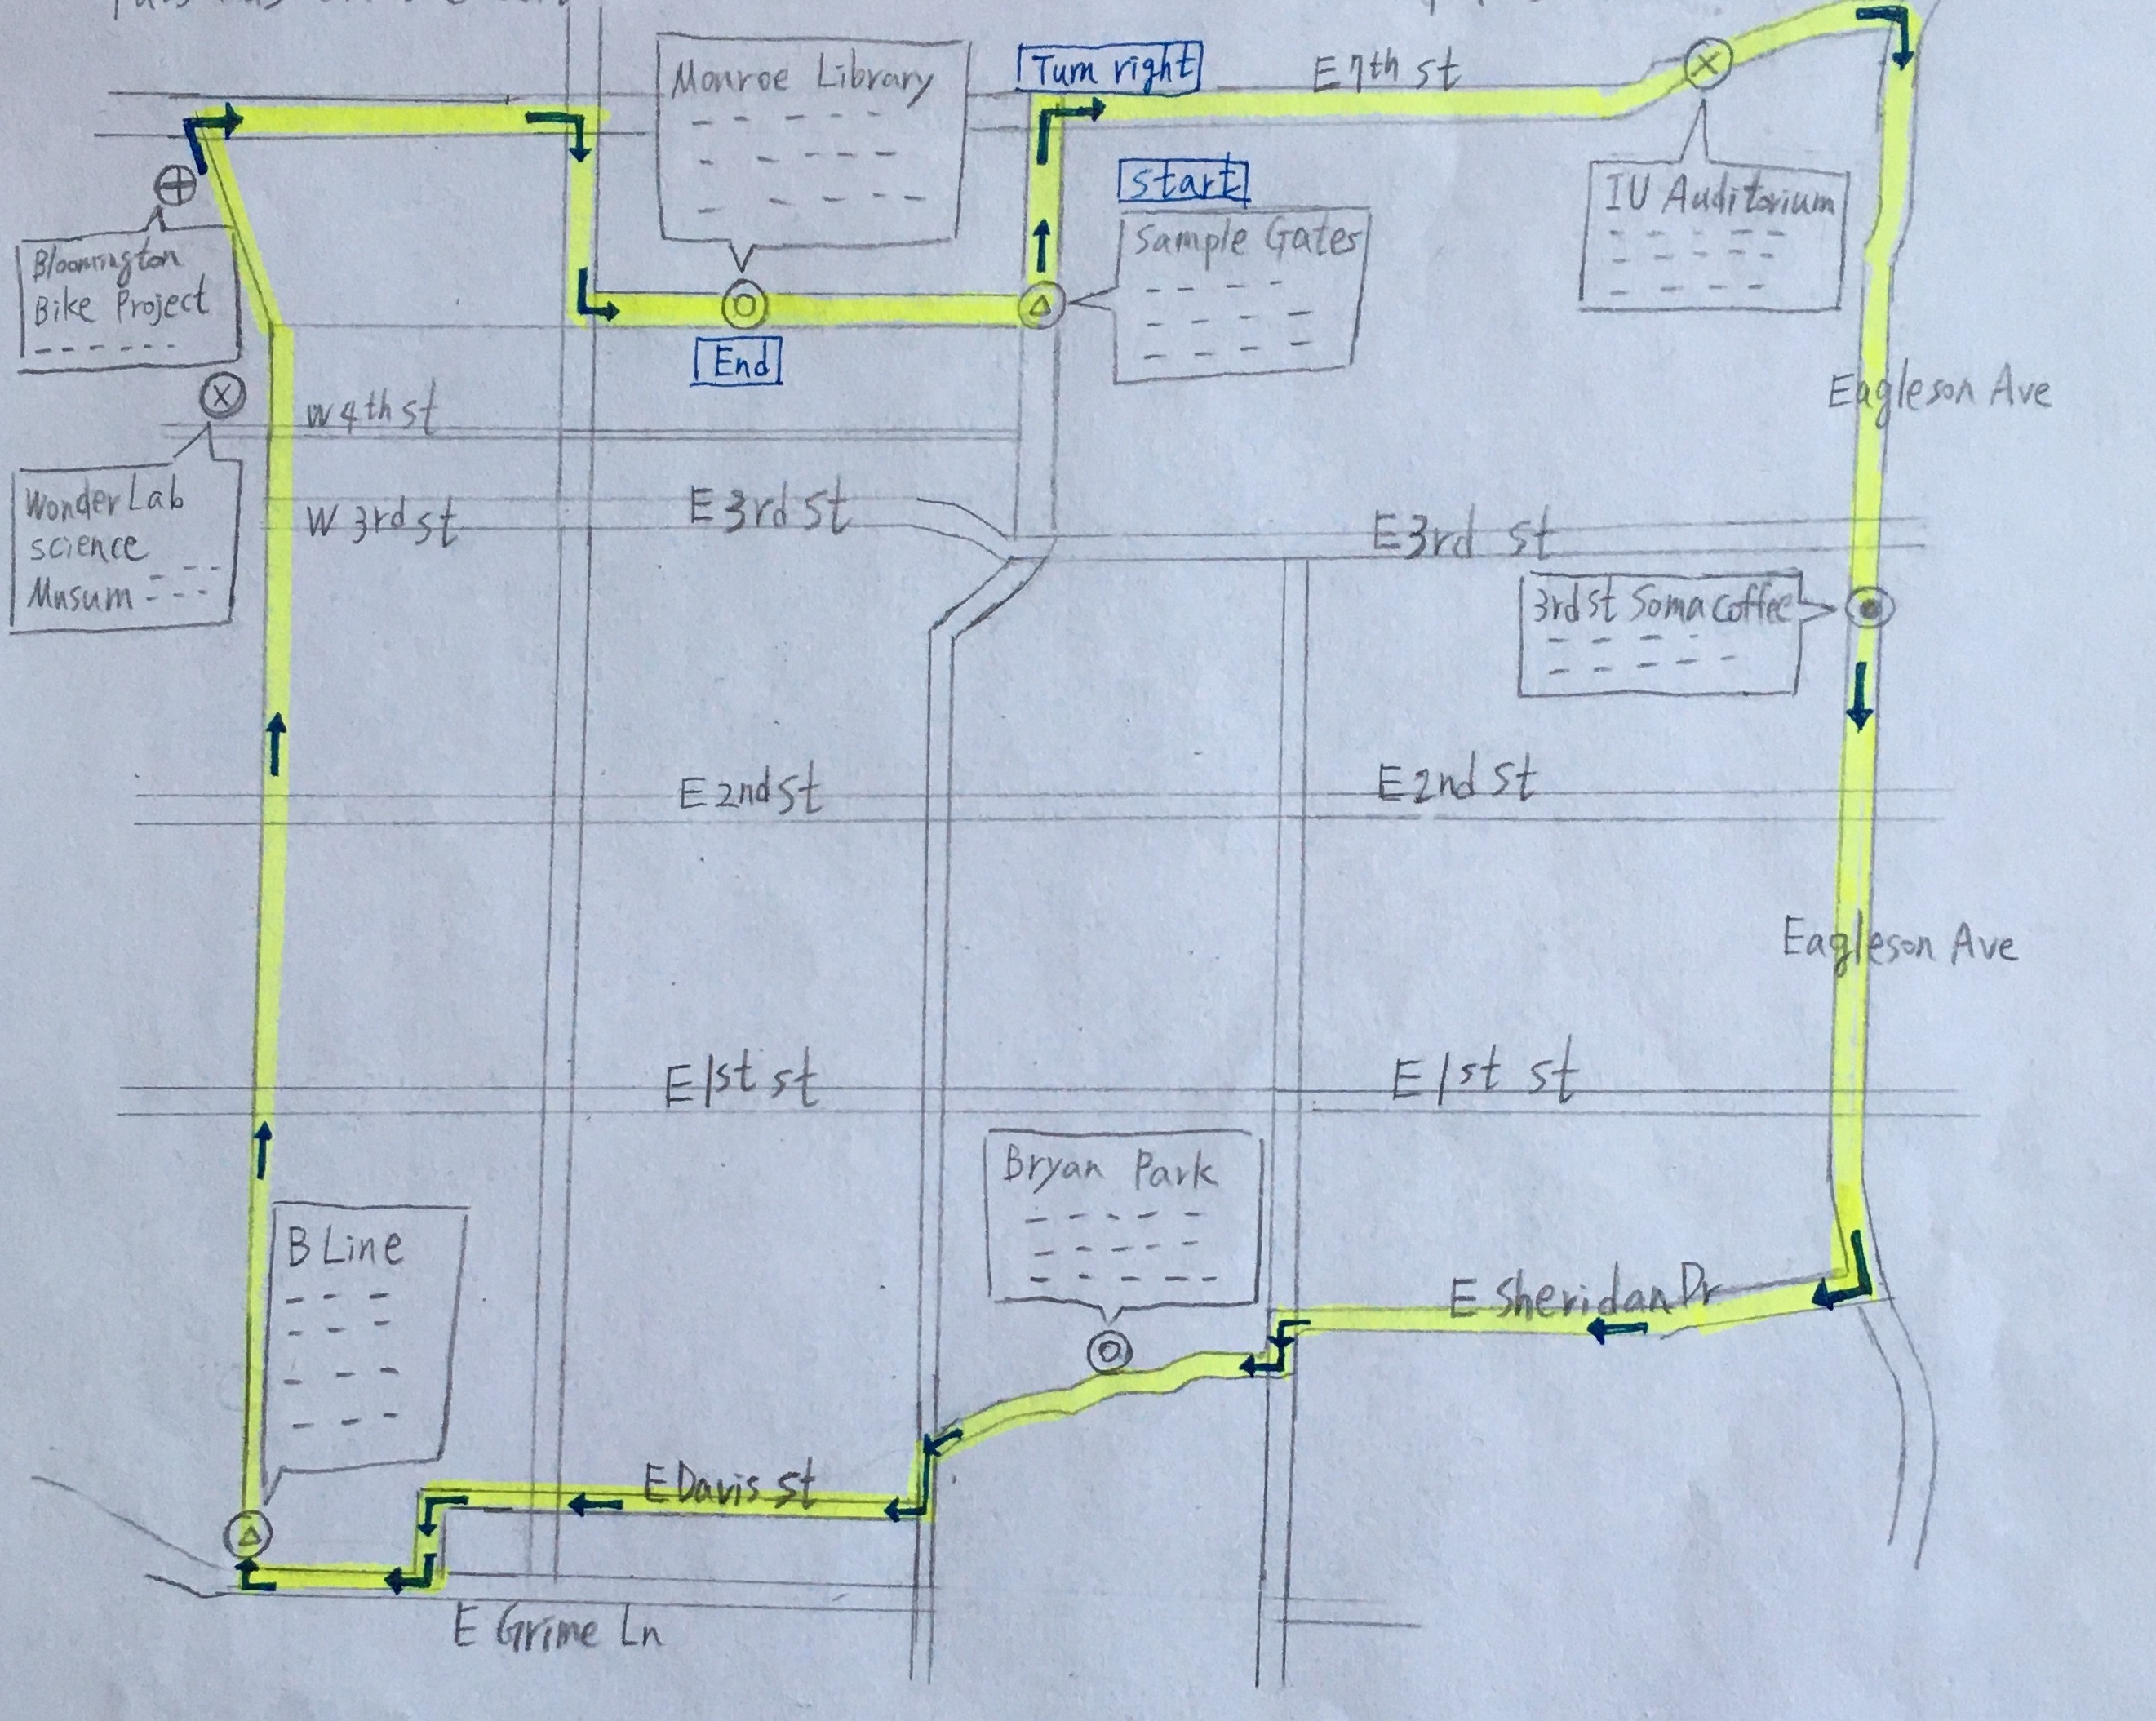 Monroe Library
Turn right
E 7th st
start
IU Auditorium
Sample Gates
Bloomington
Bike Project
End
Eagleson Ave
W 4th st
Wonder Lab
science
Musum
W 3rd st
E 3rd St
E 3rd st
3rd st Soma coffee
E 2nd St
E 2nd St
Eagleson Ave
E 1st st
E 1st st
Bryan Park
B Line
E Sheridan Dr
E Davis st
E Grime Ln